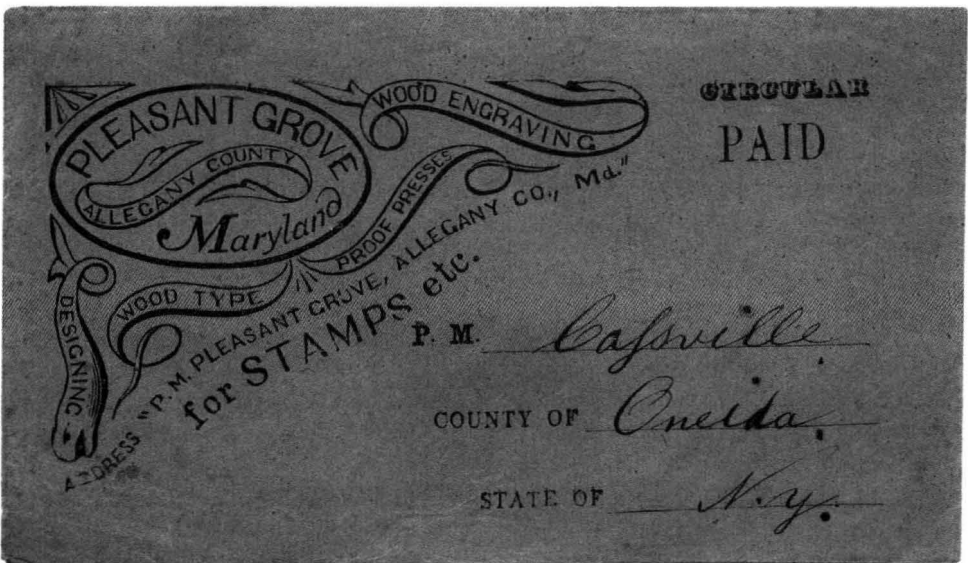 PLEASANT GROVE
ALLEGANY COUNTY
Maryland
WOOD ENGRAVING
PROOF PRESSES
WOOD TYPE
DESIGNING
ADDRESS "P.M. PLEASANT GROVE, ALLEGANY CO., Md."
for STAMPS etc.
CIRCULAR
PAID
P. M. Cassville
COUNTY OF Oneida
STATE OF N.y.